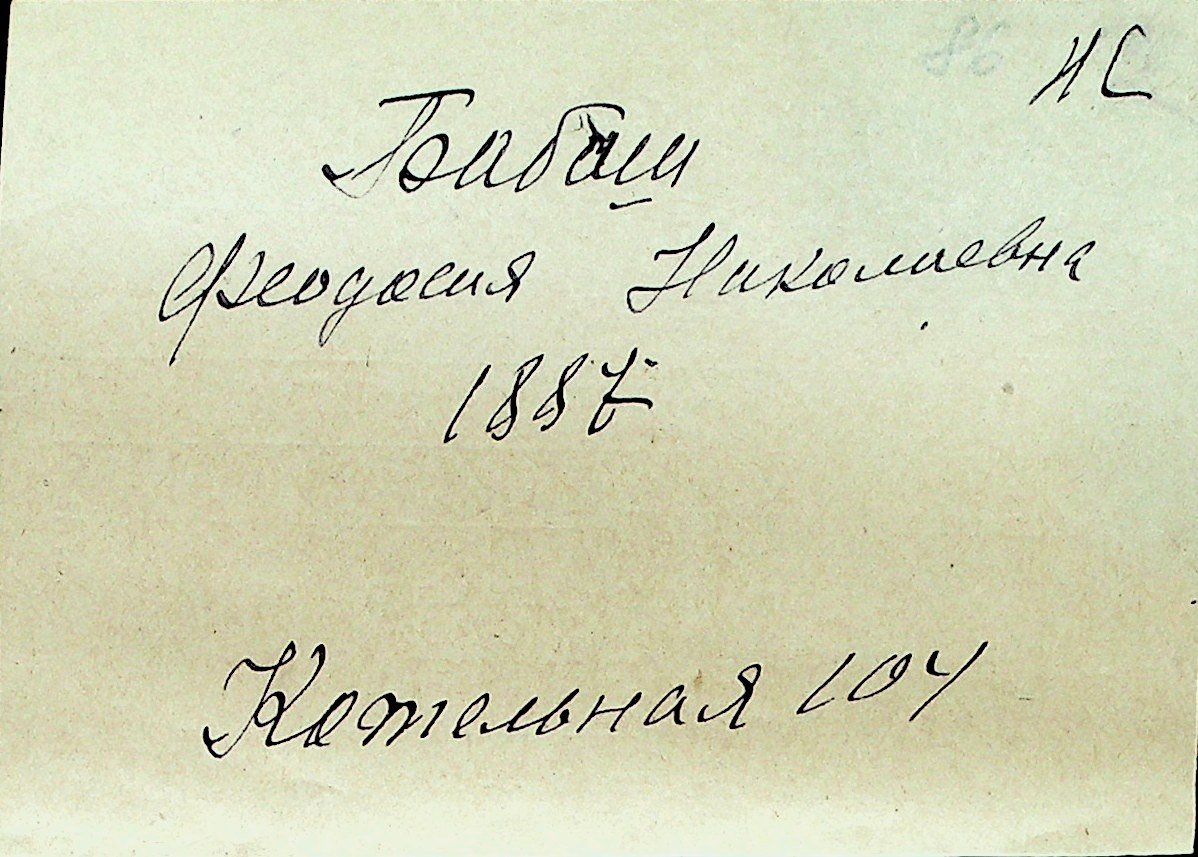 НС
Бабаш
Феодосия Николаевна
1887
Котельная 104